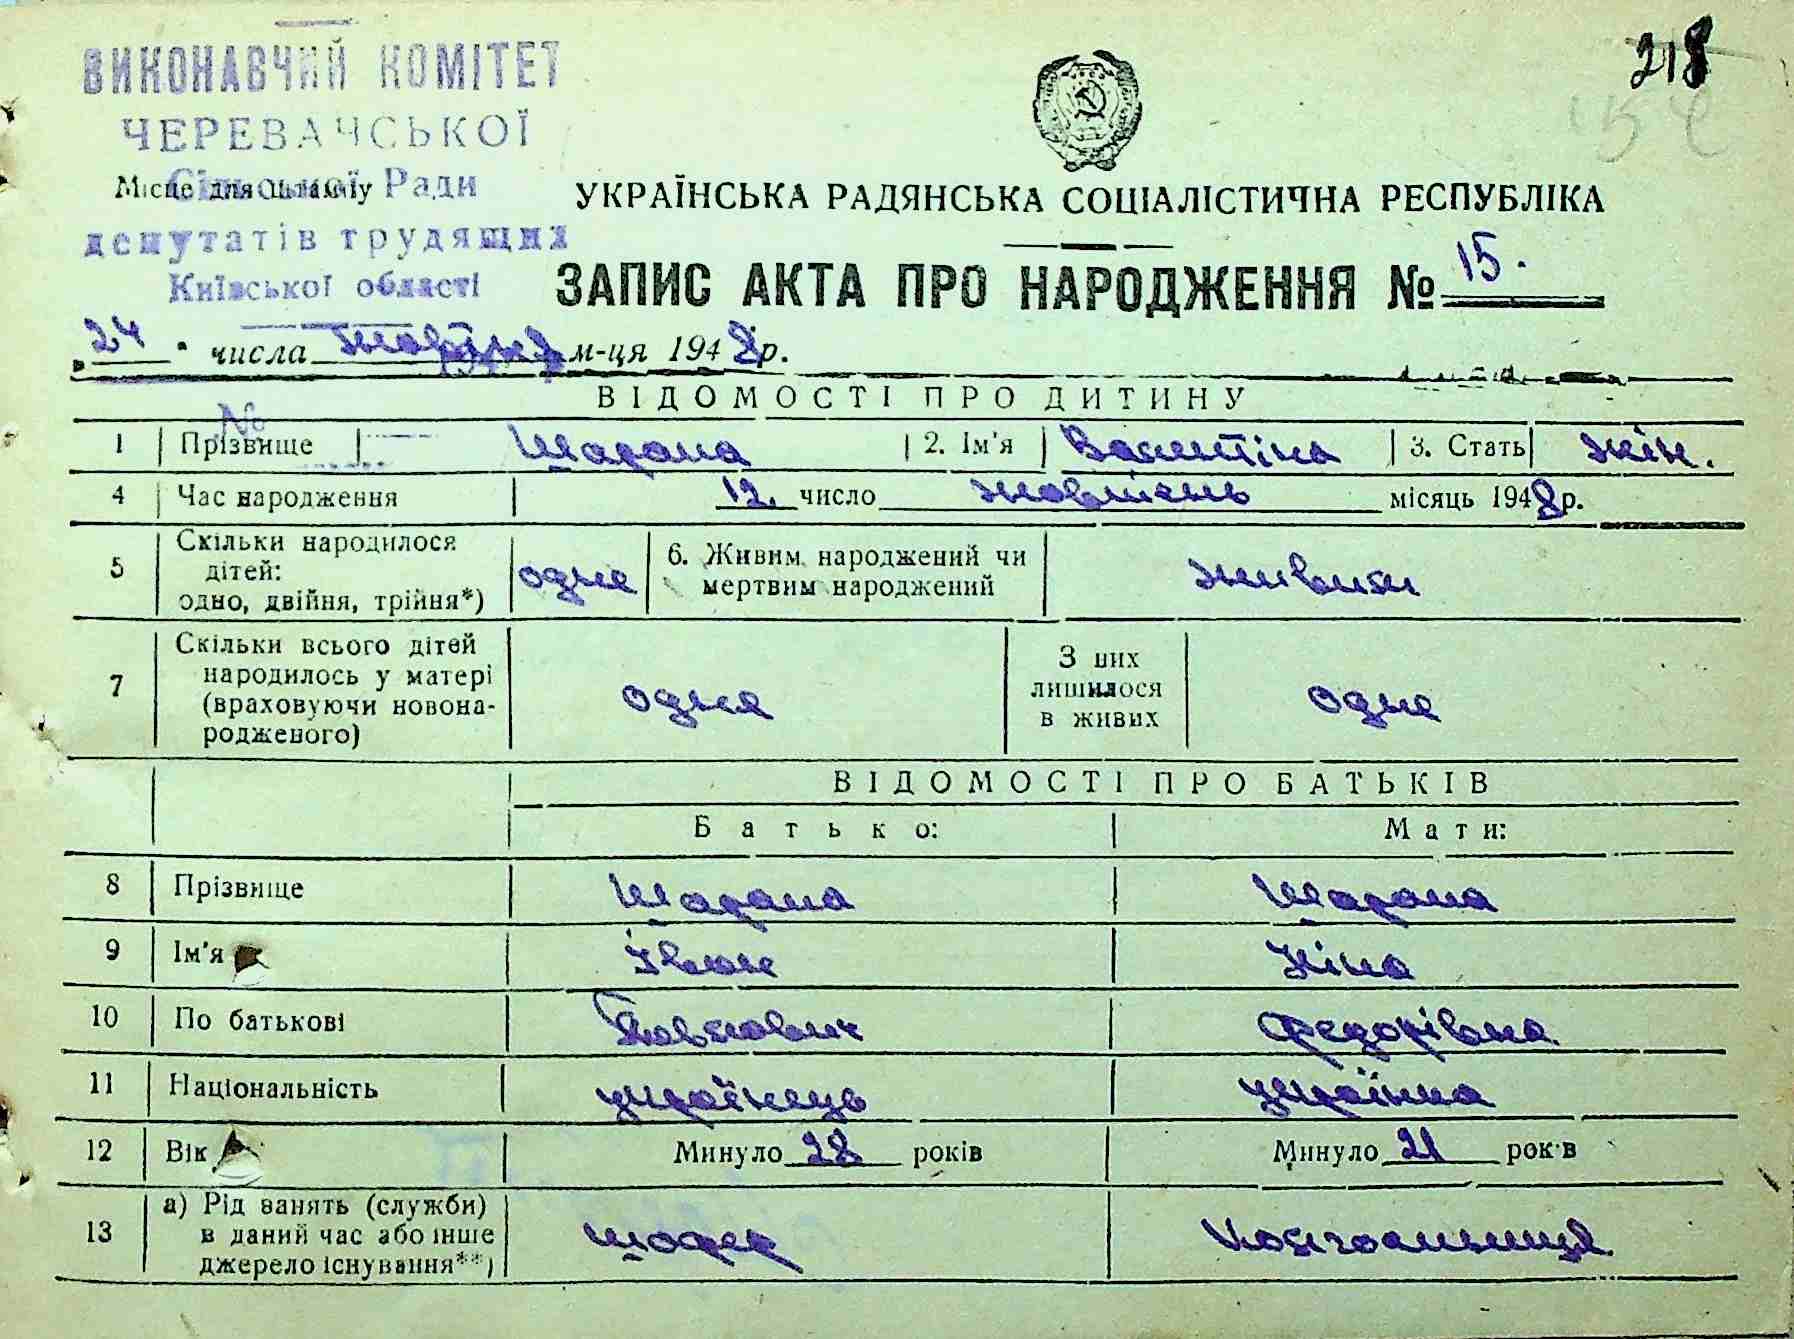 218
ВИКОНАВЧИЙ КОМІТЕТ
ЧЕРЕВАЧСЬКОЇ
Сільської Ради
депутатів трудящих
Київської області
Місце для штампу
УКРАЇНСЬКА РАДЯНСЬКА СОЦІАЛІСТИЧНА РЕСПУБЛІКА
ЗАПИС АКТА ПРО НАРОДЖЕННЯ № 15.
„24" числа жовтня м-ця 1948 р.
ВІДОМОСТІ ПРО ДИТИНУ
№
1 Прізвище Шарапа 2. Ім'я Валентіна 3. Стать жін.
4 Час народження 12. число жовтень місяць 1948 р.
5 Скільки народилося дітей: одно, двійня, трійня*) одне 6. Живим народжений чи мертвим народжений живим
7 Скільки всього дітей народилось у матері (враховуючи новонародженого) одне З них лишилося в живих одне
ВІДОМОСТІ ПРО БАТЬКІВ
Батько: Мати:
8 Прізвище Шарапа Шарапа
9 Ім'я Іван Ніна
10 По батькові Павлович Федорівна
11 Національність українець українка
12 Вік Минуло 28 років Минуло 21 років
13 а) Рід занять (служби) в даний час або інше джерело існування**) шофер колгоспниця